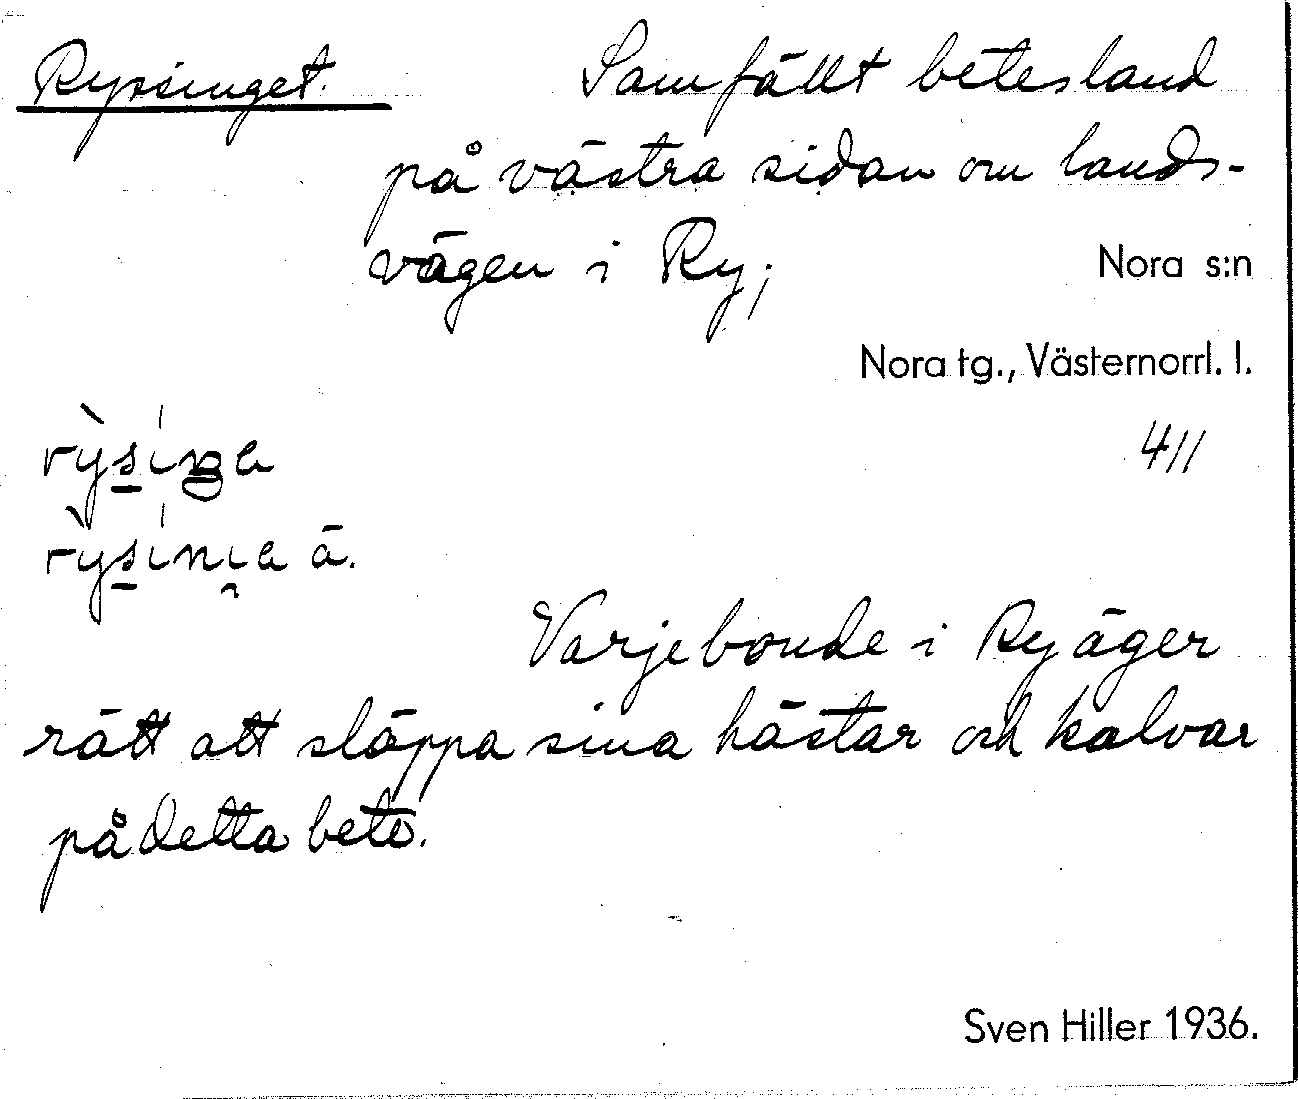 Rysinget. Samfällt betesland
på västra sidan om lands-
vägen i Ry; Nora s:n
Nora tg., Västernorrl. l.
411
rysiŋa
rysinia ä.
Varje bonde i Ry äger
rätt att släppa sina hästar och kalvar
på detta bete.
Sven Hiller 1936.